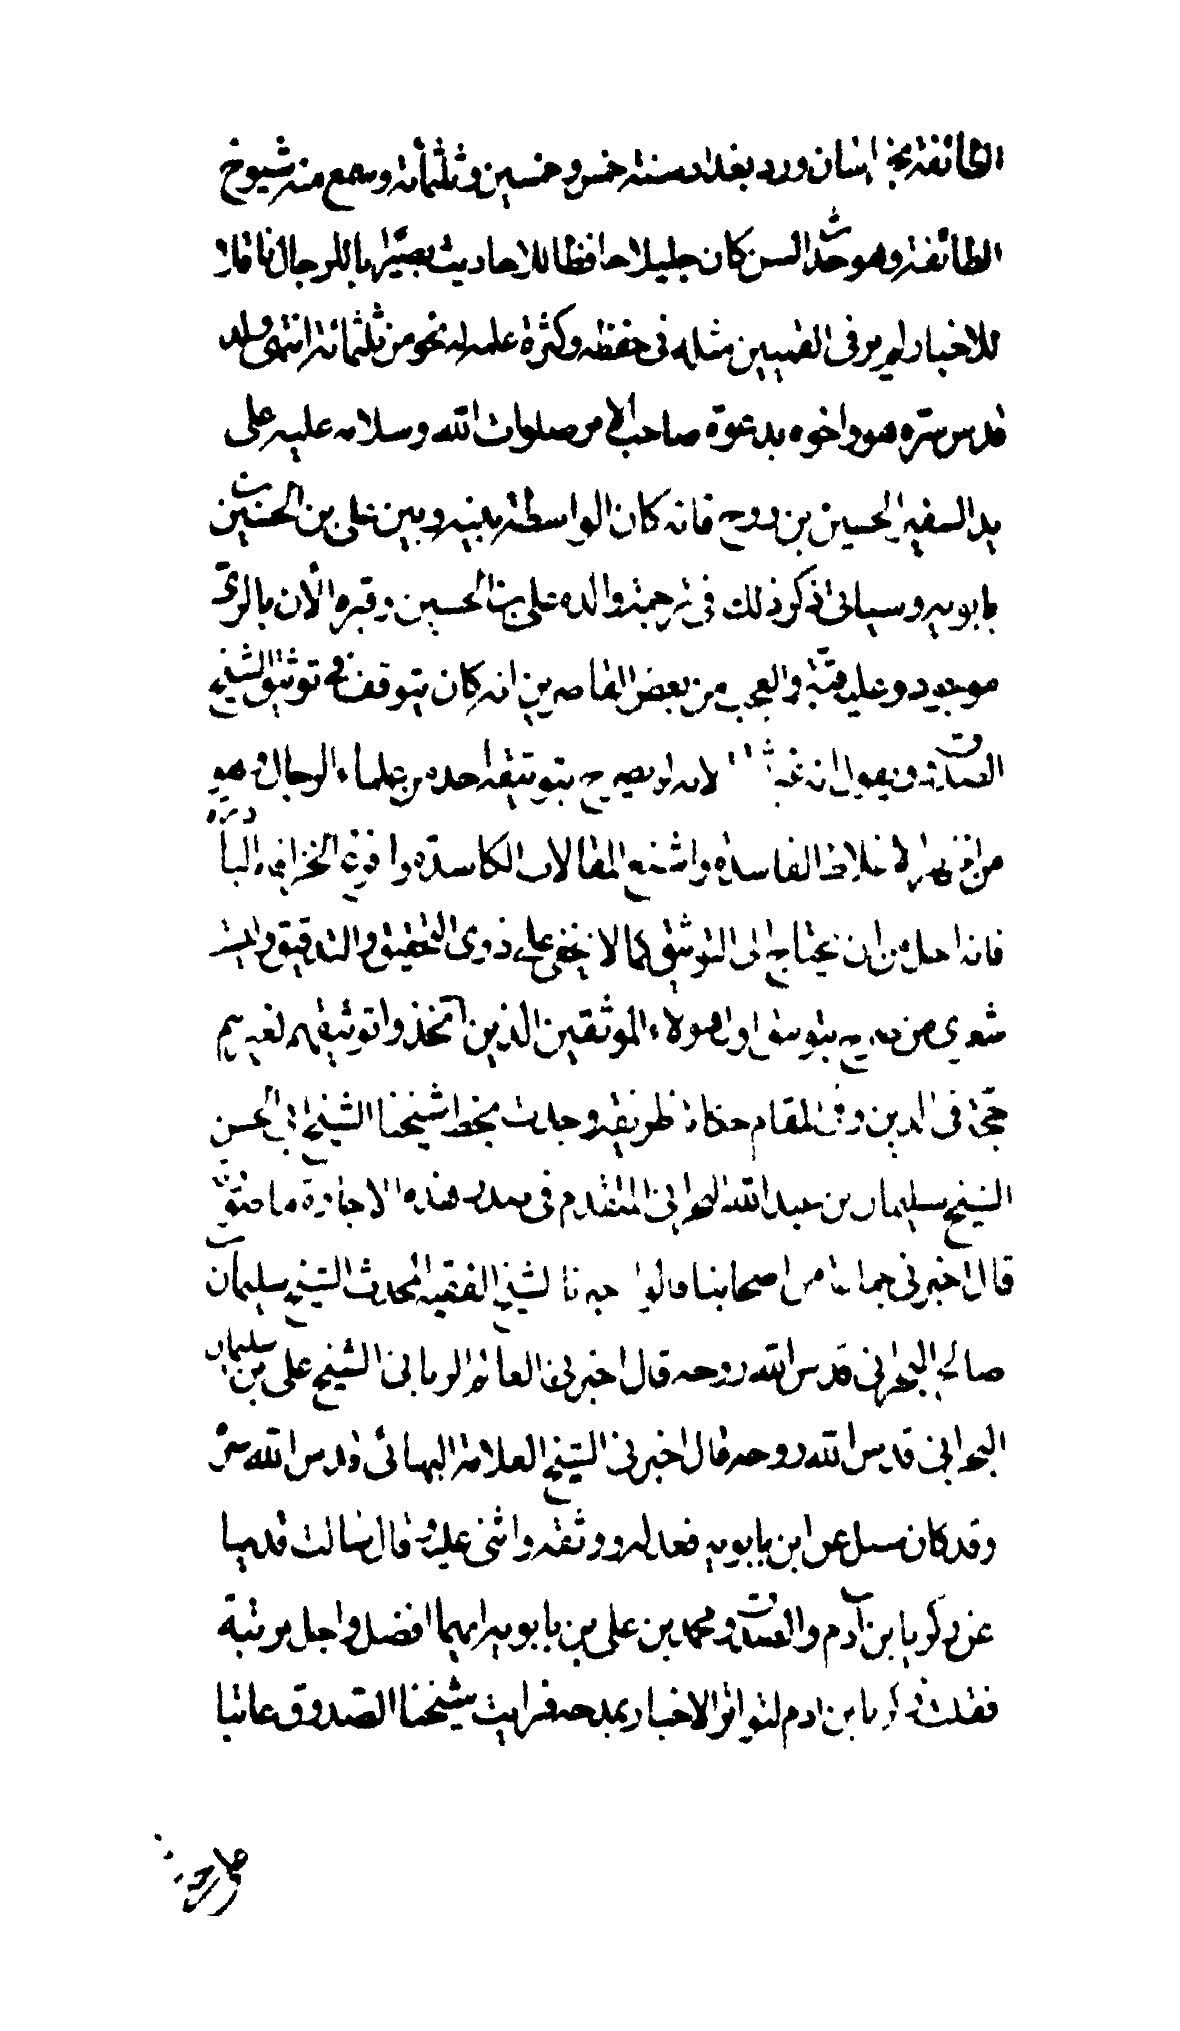 الطائفة بخراسان ورد بغداد سنة خمس وخمسين وثلثمائة وسمع منه شيوخ
الطائفة وهو حدث السن كان جليلا حافظا للاحاديث بصيرا بالرجال ناقدا
للاخبار لم ير في القميين مثله في حفظه وكثرة علمه له نحو من ثلثمائة انتهى ولد
قدس سره هو واخوه بدعوة صاحب الامر صلوات الله وسلامه عليه على
يد السفير الحسين بن روح فانه كان الواسطة بينه وبين علي بن الحسين بن
بابويه وسياتي ذكر ذلك في ترجمة والده علي بن الحسين وقبره الأن بالري
موجود وعليه قبة والعجب من بعض القاصرين انه كان يتوقف في توثيق الشيخ
الصدوق ويقول انه غير لانه لم يصرح بتوثيقه احد من علماء الرجال وهو
من اظهر الاغلاط الفاسدة واشنع المقالات الكاسدة وافزع الخرافات الباردة
فانه اجل من ان يحتاج الى التوثيق كما لا يخفى على ذوي التحقيق والتدقيق وليت
شعري من صرح بتوثيق اول هولاء الموثقين الذين اتخذوا توثيقهم لغيرهم
حجة في الدين وفي المقام حكاية ظريفة وجدت بخط شيخنا الشيخ ابي الحسن
الشيخ سليمان بن عبد الله البحراني المتقدم في صدر هذه الاجازة ما صورته
قال اخبرني جماعة من اصحابنا قالوا اخبرنا الشيخ الفقيه المحدث الشيخ سليمان بن
صالح البحراني قدس الله روحه قال اخبرني العالم الرباني الشيخ علي بن سليمان
البحراني قدس الله روحه قال اخبرني الشيخ العلامة البهائي قدس الله سره
وقد كان سئل عن ابن بابويه فعدله ووثقه واثنى عليه وقال سالت قديما
عن زكريا بن آدم والصدوق محمد بن علي بن بابويه ايهما افضل واجل مرتبة
فقلت زكريا بن ادم لتواتر الاخبار بمدحه فرايت شيخنا الصدوق عاتبا